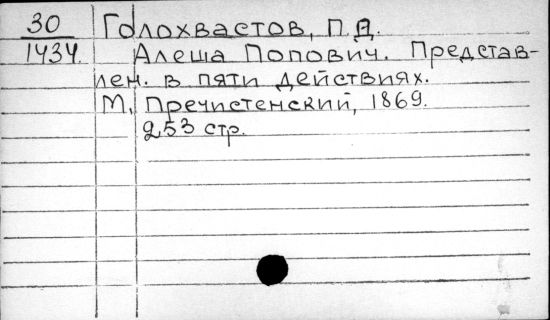 30 Голохвастов, П.Д.
1434. Алеша Попович. Представ-
лен. в пяти действиях.
М, Пречистенский, 1869.
253 стр.